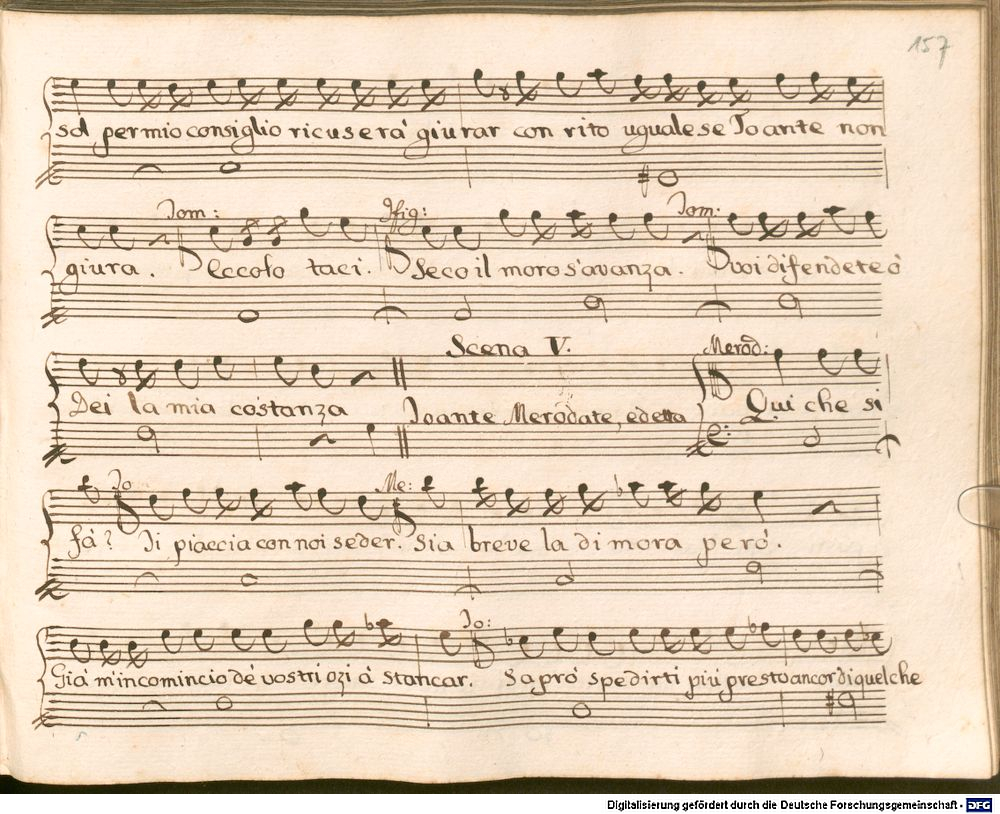 157
sol per mio consiglio ricuserà giurar con rito uguale se Toante non
Tom: Ifig: Tom:
giura. Eccolo taci. Seco il moro s'avanza. voi difendete ò
Scena V. Merod:
Dei la mia costanza Toante Merodate, e detta Qui che si
To Me:
fà? Ti piaccia con noi seder. Sia breve la dimora però.
To:
Già m'incomincio de' vostri ozi à stancar. Saprò spedirti più presto ancor di quel che
Digitalisierung gefördert durch die Deutsche Forschungsgemeinschaft - DFG